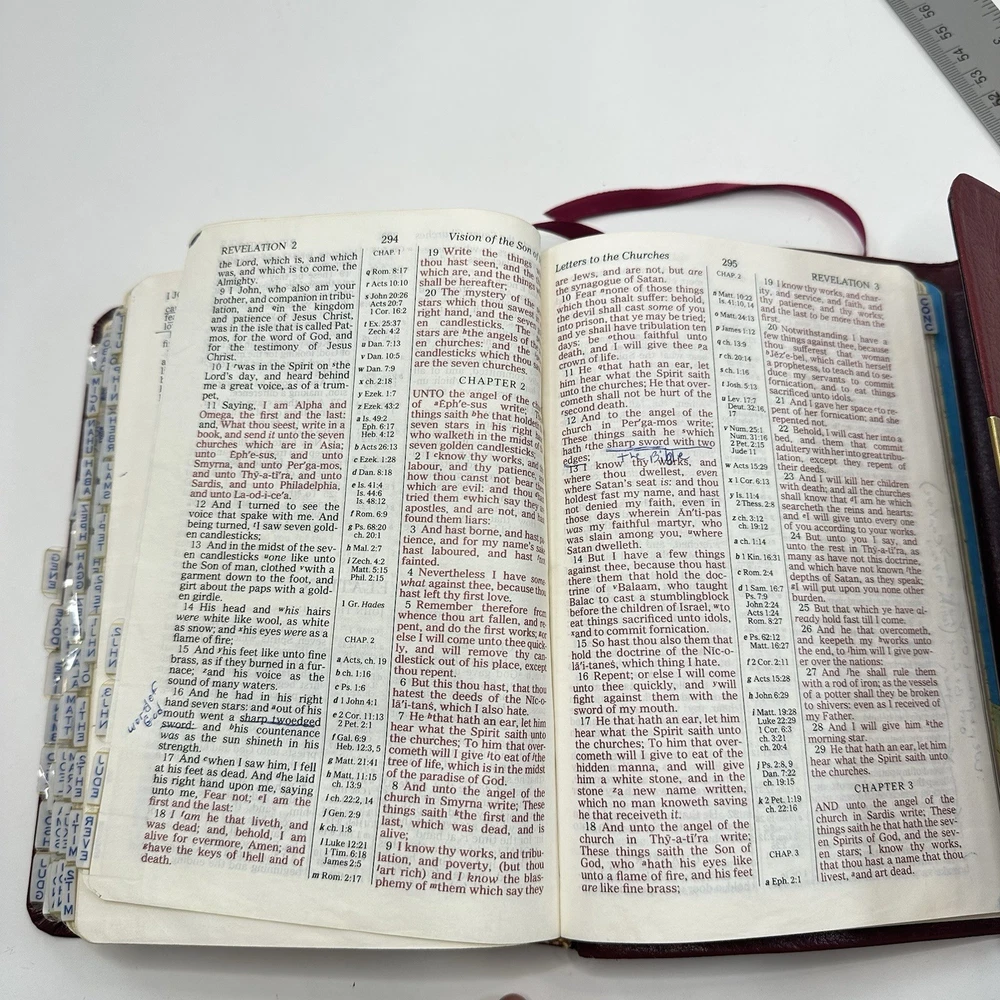 REVELATION 2
294
Vision of the Son of
the Lord, which is, and which
was, and which is to come, the
Almighty.
9 I John, who also am your
brother, and companion in tribu-
lation, and qin the kingdom
and patience of Jesus Christ,
was in the isle that is called Pat-
mos, for the word of God, and
for the testimony of Jesus
Christ.
10 I rwas in the Spirit on sthe
Lord's day, and heard behind
me a great voice, as of a trum-
pet,
11 Saying, I am Alpha and
Omega, the first and the last:
and, What thou seest, write in a
book, and send it unto the seven
churches which are in Asia;
unto Eph'e-sus, and unto
Smyrna, and unto Per'ga-mos,
and unto Thȳ-a-tī'ra, and unto
Sardis, and unto Philadelphia,
and unto La-od-i-ce'a.
12 And I turned to see the
voice that spake with me. And
being turned, tI saw seven gold-
en candlesticks;
13 And in the midst of the sev-
en candlesticks uone like unto
the Son of man, clothed vwith a
garment down to the foot, and
girt about the paps with a gold-
en girdle.
14 His head and whis hairs
were white like wool, as white
as snow; and xhis eyes were as a
flame of fire;
15 And yhis feet like unto fine
brass, as if they burned in a fur-
nace; zand his voice as the
sound of many waters.
16 And he had in his right
hand seven stars: and aout of his
mouth went a sharp twoedged
sword: and bhis countenance
was as the sun shineth in his
strength.
17 And cwhen I saw him, I fell
at his feet as dead. And dhe laid
his right hand upon me, saying
unto me, Fear not; eI am the
first and the last:
18 I fam he that liveth, and
was dead; and, behold, I am
alive for evermore, Amen; and
ghave the keys of hhell and of
death.
CHAP. 1
q Rom. 8:17
r Acts 10:10
s John 20:26
Acts 20:7
1 Cor. 16:2
t Ex. 25:37
Zech. 4:2
u Dan. 7:13
v Dan. 10:5
w Dan. 7:9
x ch. 2:18
y Ezek. 1:7
z Ezek. 43:2
a Is. 49:2
Eph. 6:17
Heb. 4:12
b Acts 26:13
c Ezek. 1:28
d Dan. 8:18
e Is. 41:4
Is. 44:6
Is. 48:12
f Rom. 6:9
g Ps. 68:20
ch. 20:1
h Mal. 2:7
i Zech. 4:2
Matt. 5:15
Phil. 2:15
1 Gr. Hades
CHAP. 2
a Acts, ch. 19
b ch. 1:16
c Ps. 1:6
d 1 John 4:1
e 2 Cor. 11:13
2 Pet. 2:1
f Gal. 6:9
Heb. 12:3, 5
g Matt. 21:41
h Matt. 11:15
ch. 13:9
i ch. 22:2, 14
j Gen. 2:9
k ch. 1:8
l Luke 12:21
1 Tim. 6:18
James 2:5
m Rom. 2:17
19 Write the things
thou hast seen, and the
which are, and the things
shall be hereafter;
20 The mystery of the
stars which thou sawest
right hand, and the seven
en candlesticks. The
stars are hthe angels of the
en churches: and the
candlesticks which thou
are the seven churches.
CHAPTER 2
UNTO the angel of the
of aEph'e-sus write;
things saith bhe that holdeth
seven stars in his right
who walketh in the midst of
seven golden candlesticks;
2 I cknow thy works, and
labour, and thy patience,
how thou canst not bear
which are evil: and thou
tried them ewhich say they
apostles, and are not, and
found them liars:
3 And hast borne, and hast
tience, and for my name's sake
hast laboured, and hast
fainted.
4 Nevertheless I have some
what against thee, because thou
hast left thy first love.
5 Remember therefore from
whence thou art fallen, and re-
pent, and do the first works; gor
else I will come unto thee quick-
ly, and will remove thy can-
dlestick out of his place, except
thou repent.
6 But this thou hast, that thou
hatest the deeds of the NIc-o-
lā'i-tanes̀, which I also hate.
7 He hthat hath an ear, let him
hear what the Spirit saith unto
the churches; To him that over-
cometh will I give ito eat of jthe
tree of life, which is in the midst
of the paradise of God.
8 And unto the angel of the
church in Smyrna write; These
things saith kthe first and the
last, which was dead, and is
alive;
9 I know thy works, and tribu-
lation, and poverty, (but thou
lart rich) and I know the blas-
phemy of mthem which say they
Letters to the Churches
295
REVELATION 3
are Jews, and are not, but are
the synagogue of Satan.
10 Fear none of those things
which thou shalt suffer: behold,
the devil shall cast some of you
into prison, that ye may be tried;
and ye shall have tribulation ten
days: be othou faithful unto
death, and I will give thee pa
crown of life.
11 He qthat hath an ear, let
him hear what the Spirit saith
unto the churches; He that over-
cometh shall not be hurt of the
rsecond death.
12 And to the angel of the
church in Per'ga-mos write;
These things saith he swhich
hath the sharp sword with two
edges;
The Bible
13 I know thy works, and
where thou dwellest, even
where Satan's seat is: and thou
holdest fast my name, and hast
not denied my faith, even in
those days wherein An'ti-pas
was my faithful martyr, who
was slain among you, where
Satan dwelleth.
14 But I have a few things
against thee, because thou hast
there them that hold the doc-
trine of Balaam, who taught
Balac to cast a stumblingblock
before the children of Israel, wto
eat things sacrificed unto idols,
xand to commit fornication.
15 So hast thou also them that
hold the doctrine of the NIc-o-
lā'i-tanes̀, which thing I hate.
16 Repent; or else I will come
unto thee quickly, and ywill
fight against them with the
sword of my mouth.
17 He that hath an ear, let him
hear what the Spirit saith unto
the churches; To him that over-
cometh will I give to eat of the
hidden manna, and will give
him a white stone, and in the
stone za new name written,
which no man knoweth saving
he that receiveth it.
18 And unto the angel of the
church in Thȳ-a-tī'ra write;
These things saith the Son of
God, who ahath his eyes like
unto a flame of fire, and his feet
are like fine brass;
CHAP. 2
n Matt. 10:22
Is. 41:10, 14
o Matt. 24:13
p James 1:12
q ch. 13:9
r ch. 20:14
s ch. 1:16
t Josh. 5:13
u Lev. 17:7
Deut. 32:16,
17
v Num. 25:1
Num. 31:16
2 Pet. 2:15
Jude 11
w Acts 15:29
x 1 Cor. 6:13
y Is. 11:4
2 Thess. 2:8
z ch. 3:12
ch. 19:12
a ch. 1:14
b 1 Kin. 16:31
c Rom. 2:4
d 1 Sam. 16:7
Ps. 7:9
John 2:24
Acts 1:24
Rom. 8:27
e Ps. 62:12
Matt. 16:27
f 2 Cor. 2:11
g Acts 15:28
h John 6:29
i Matt. 19:28
Luke 22:29
1 Cor. 6:3
ch. 3:21
ch. 20:4
j Ps. 2:8, 9
Dan. 7:22
ch. 19:15
k 2 Pet. 1:19
ch. 22:16
CHAP. 3
a Eph. 2:1
19 I know thy works, and char-
ity, and service, and faith, and
thy patience, and thy works;
and the last to be more than the
first.
20 Notwithstanding I have a
few things against thee, because
thou sufferest that woman
bJĕz'e-bel, which calleth herself
a prophetess, to teach and to se-
duce my servants to commit
fornication, and to eat things
sacrificed unto idols.
21 And I gave her space cto re-
pent of her fornication; and she
repented not.
22 Behold, I will cast her into a
bed, and them that commit
adultery with her into great tribu-
lation, except they repent of
their deeds.
23 And I will kill her children
with death; and all the churches
shall know that dI am he which
searcheth the reins and hearts:
and eI will give unto every one
of you according to your works.
24 But unto you I say, and
unto the rest in Thȳ-a-tī'ra, as
many as have not this doctrine,
and which have not known fthe
depths of Satan, as they speak;
gI will put upon you none other
burden.
25 But that which ye have al-
ready hold fast till I come.
26 And he that overcometh,
and keepeth my hworks unto
the end, to ihim will I give pow-
er over the nations:
27 And jhe shall rule them
with a rod of iron; as the vessels
of a potter shall they be broken
to shivers: even as I received of
my Father.
28 And I will give him kthe
morning star.
29 He that hath an ear, let him
hear what the Spirit saith unto
the churches.
CHAPTER 3
AND unto the angel of the
church in Sardis write; These
things saith he that hath the sev-
en Spirits of God, and the sev-
en stars; I know thy works,
that thou hast a name that thou
livest, aand art dead.
GENE
2JHN
3JHN
JUDE
REVE
JUDG
52 53 54 55 56